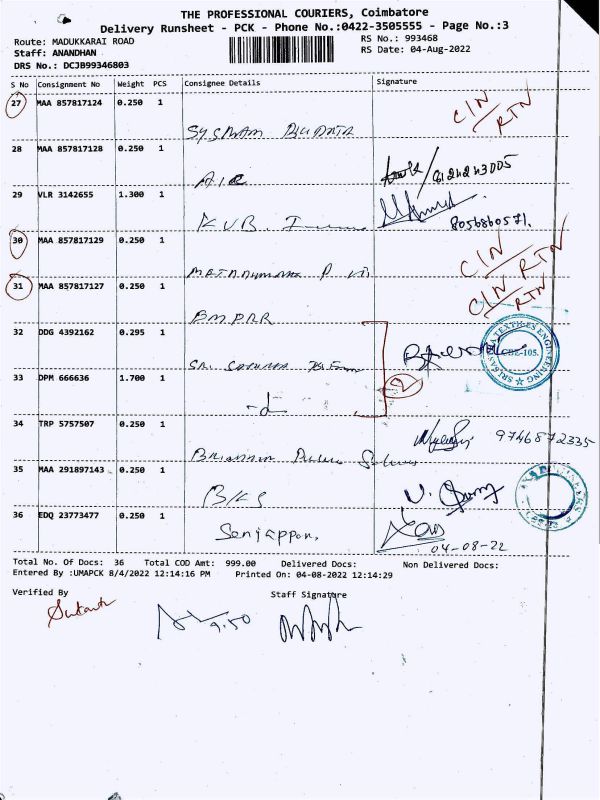 THE PROFESSIONAL COURIERS, Coimbatore
Delivery Runsheet - PCK - Phone No.:0422-3505555 - Page No.:3
Route: MADUKKARAI ROAD
RS No.: 993468
Staff: ANANDHAN
RS Date: 04-Aug-2022
DRS No.: DCJB99346803
S No Consignment No Weight PCS Consignee Details Signature
27 MAA 857817124 0.250 1
C/N
RTN
28 MAA 857817128 0.250 1
29 VLR 3142655 1.300 1
KVB
8056860571.
30 MAA 857817129 0.250 1
C/N
RTN
31 MAA 857817127 0.250 1
C/N
RTN
32 DDG 4392162 0.295 1
CBE-105.
33 DPM 666636 1.700 1
2
34 TRP 5757507 0.250 1
9746872335
35 MAA 291897143 0.250 1
BKS
36 EDQ 23773477 0.250 1
Senjappan.
04-08-22
Total No. Of Docs: 36 Total COD Amt: 999.00 Delivered Docs: Non Delivered Docs:
Entered By :UMAPCK 8/4/2022 12:14:16 PM Printed On: 04-08-2022 12:14:29
Verified By
Staff Signature
9.50